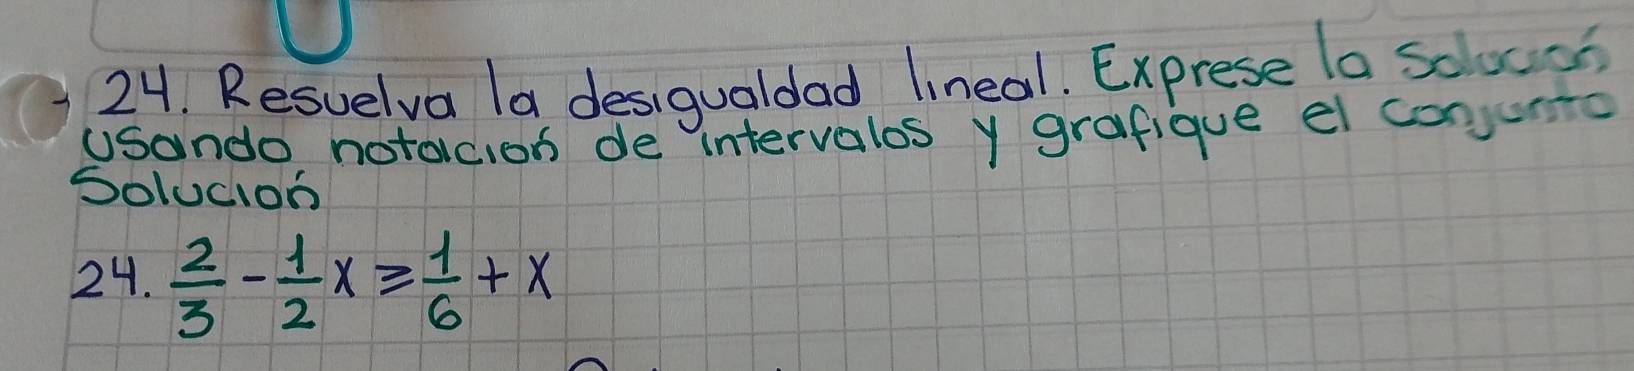 24. Resuelva la desigualdad lineal. Exprese la solución
usando notación de intervalos y grafique el conjunto
Solución
24. 2/3 - 1/2 x ≥ 1/6 + x